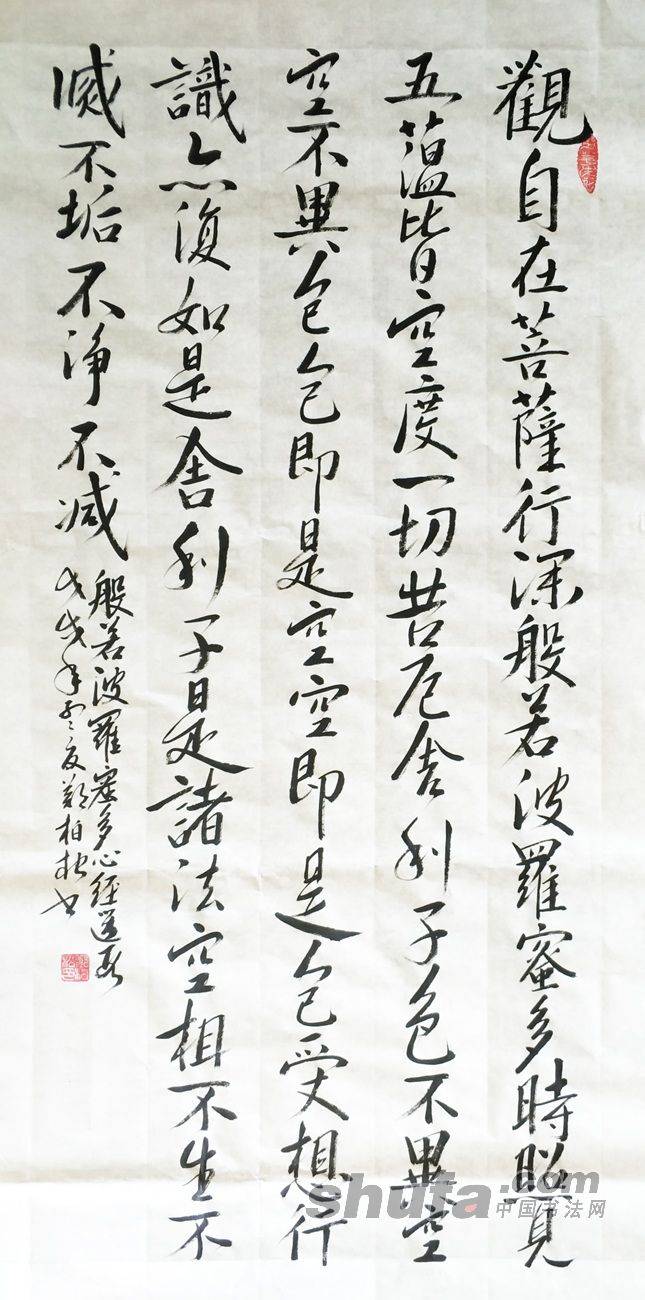 觀自在菩薩行深般若波羅蜜多時照見
五蕴皆空度一切苦厄舍利子色不異空
空不異色色即是空空即是色受想行
識亦復如是舍利子是諸法空相不生不
滅不垢不淨不减
般若波羅蜜多心經選段
戊戌年雲友鄭柏松书
shufa.com
中国书法网